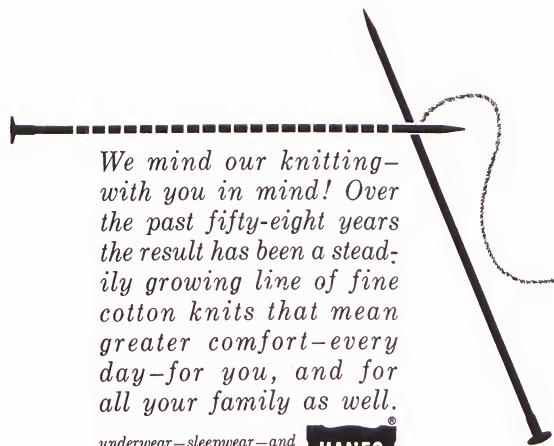 We mind our knitting–
with you in mind! Over
the past fifty-eight years
the result has been a stead-
ily growing line of fine
cotton knits that mean
greater comfort–every
day–for you, and for
all your family as well.
underwear–sleepwear–and
HANES®